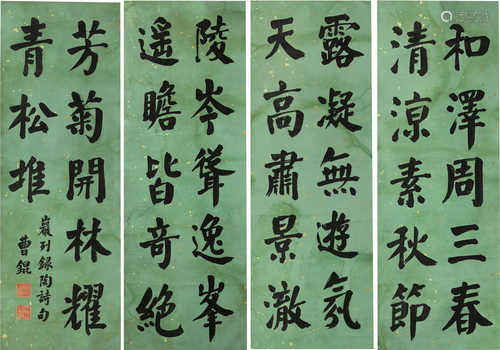 和澤周三春
清涼素秋節
露凝無遊氛
天高肅景澈
陵岑聳逸峯
遙瞻皆奇絕
芳菊開林耀
青松堆
巖列錄陶詩句
曹錕